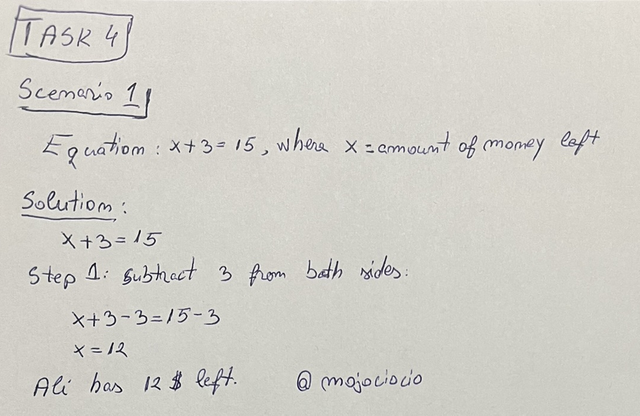 TASK 4
Scenario 1
Equation: x+3=15, where x=amount of money left
Solution:
x+3=15
Step 1: subtract 3 from both sides:
x+3-3=15-3
x=12
Ali has 12 $ left. @mojociocio